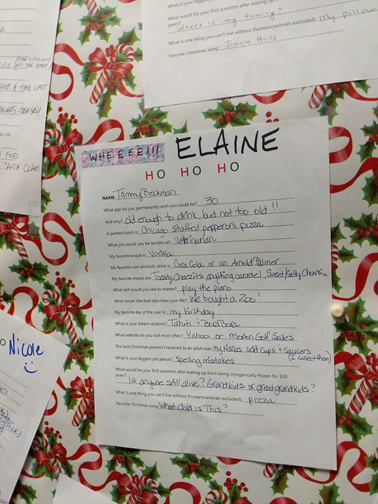 What would be your first question after waking up
Where is my family?
What is one thing you can't live without (humans/animals excluded) my pillow
Favorite Christmas song: Jingle Bells
WHEEEE!!! ELAINE
HO HO HO
NAME: Tammy Beckman
What age do you permanently wish you could be? 30
And why? old enough to drink, but not too old!!
A perfect lunch is: Chicago stuffed pepperoni pizza
What job would you be terrible at? Veterinarian
My favorite scent is: Vanilla
My favorite non-alcoholic drink is: Coca Cola or an Arnold Palmer
My favorite snacks are: Toasty Cheezits, anything caramel, Sweet & Salty
What skill would you like to master? play the piano
What movie title best describes your life? We bought a Zoo!
My favorite day of the year is: my Birthday
What is your dream vacation? Tahiti - Bora Bora
What website do you visit most often? Yahoo or Marfin Golf Sales
The best Christmas present I received as an adult was: my Nana's odd cups + saucers
(I collect them)
What is your biggest pet peeve? Spelling mistakes
What would be your first question after waking up from being cryogenically frozen for 100
years? Is anyone still alive? Grandkids or great grandkids?
What is one thing you can't live without (humans/animals excluded) pizza
Favorite Christmas song: What Child is This?
Nicole